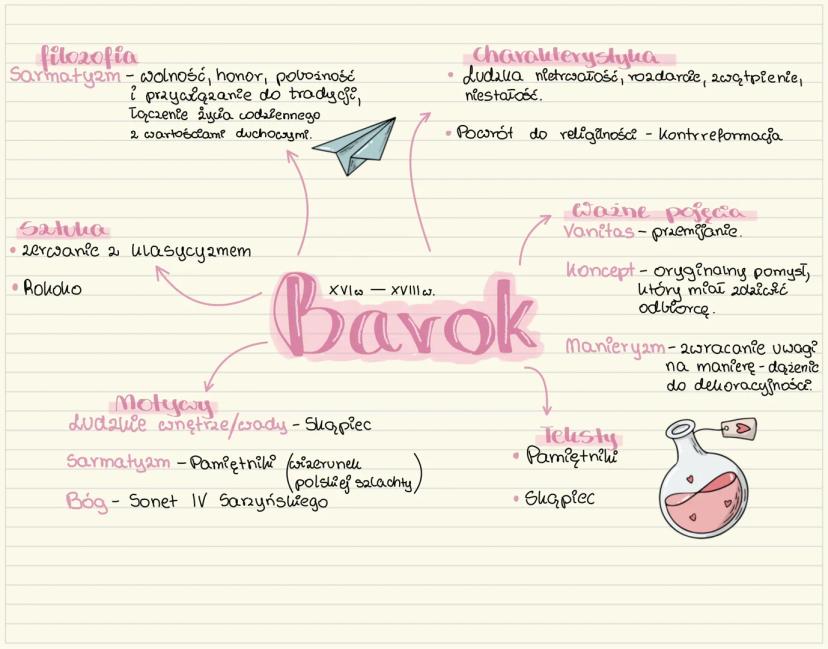 filozofia
Sarmatyzm - wolność, honor, pobożność
i przywiązanie do tradycji,
łączenie życia codziennego
z wartościami duchowymi.
Charakterystyka
• Ludzka nietrwałość, rozdarcie, zwątpienie,
niestałość.
• Powrót do religijności - kontrreformacja
Sztuka
• zerwanie z klasycyzmem
• Rokoko
Ważne pojęcia
Vanitas - przemijanie.
Koncept - oryginalny pomysł,
który miał zdziwić
odbiorcę.
Manieryzm - zwracanie uwagi
na manierę - dążenie
do dekoracyjności.
XVI w — XVIII w.
Barok
Motywy
Ludzkie wnętrze/wady - Skąpiec
Sarmatyzm - Pamiętniki (wizerunek
polskiej szlachty)
Bóg - Sonet IV Sarzyńskiego
Teksty
• Pamiętniki
• Skąpiec